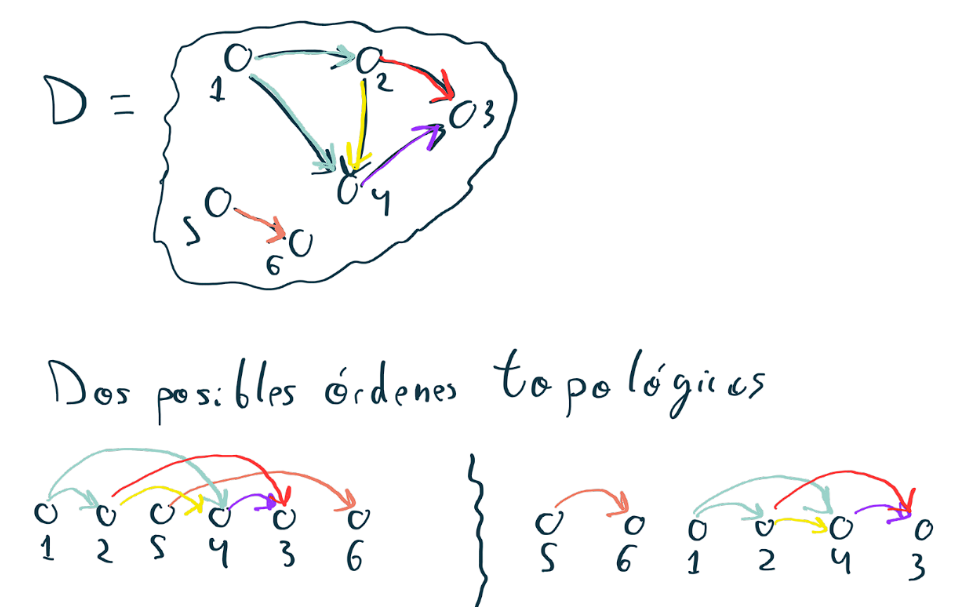 D =
1
2
3
4
5
6
Dos posibles órdenes topológicos
1 2 5 4 3 6
5 6 1 2 4 3